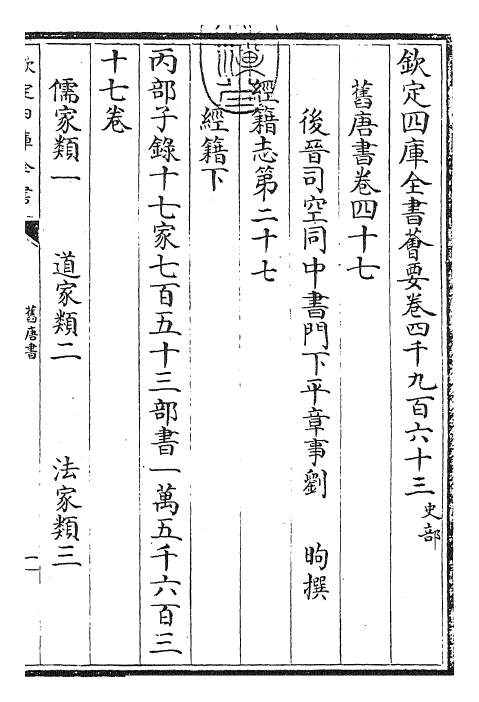 欽定四庫全書薈要卷四千九百六十三 史部
舊唐書卷四十七
後晉司空同中書門下平章事劉 昫撰
經籍志第二十七
經籍下
丙部子錄十七家七百五十三部書一萬五千六百三
十七卷
儒家類一 道家類二 法家類三
欽定四庫全書
舊唐書
一